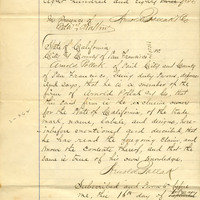 eight hundred and eighty
In presence of
State of California
City and County of San Francisco } ss
Arnold Pollak of said City and County
of San Francisco, being duly sworn, deposes
and says, that he is a member of the
firm of Arnold Pollak & Co, that
the said firm is the exclusive owner
for the State of California, of the trade
mark, name, labels, and designs, here-
inbefore mentioned and described that
he has read the foregoing claim and
knows the contents thereof, and that the
same is true of his own knowledge.
Arnold Pollak
Subscribed and sworn to before
me, this 16th day of